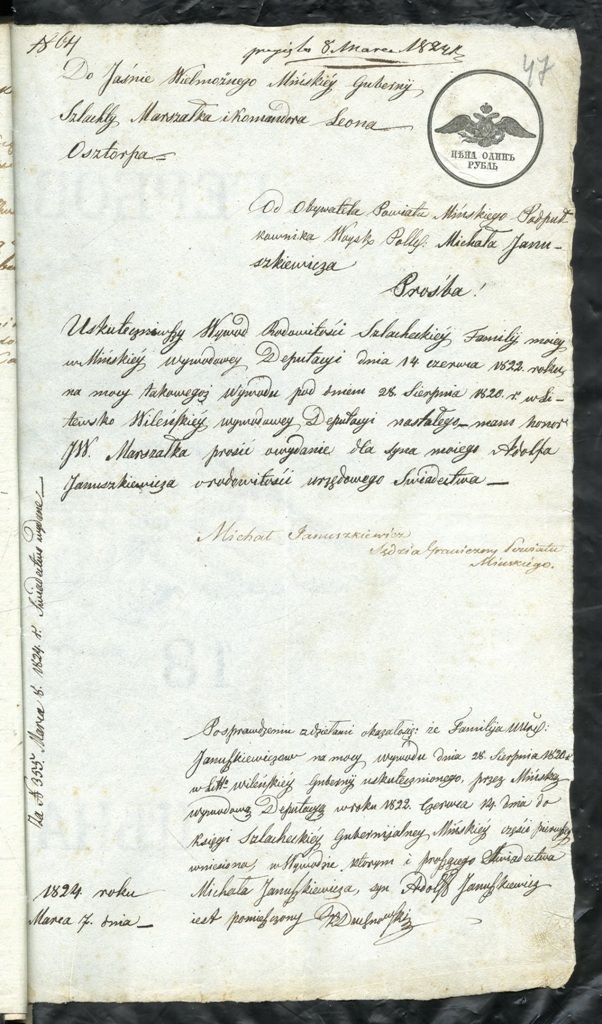 № 64
przyięto 8 Marca 1824 r.
47
Do Jaśnie Wielmożnego Mińskiéy Guberny
Szlachty Marszałka i Komandora Leona
Osztorpa
ЦѢНА ОДИНЪ
РУБЛЬ
Od Obywatela Powiatu Mińskiego Podpuł-
kownika Woysk Polk. Michała Janu-
szkiewicza
Prośba!
Uskuteczniwszy Wywod Rodowitości Szlacheckiéy Familij moiey
w Mińskiéy wywodowey Deputacyi dnia 14 czerwca 1822. roku
na mocy takowegoż Wywodu pod dniem 28 Sierpnia 1820. r. w Li-
tewsko Wileńskiéy wywodowey Deputacyi nastałego mam honor
JW. Marszałka prosić o wydanie dla syna moiego Adolfa
Januszkiewicza o rodowitości urzędowego Swiadectwa
Michał Januszkiewicz
Sędzia Graniczny Powiatu
Mińskiego.
Za № 355. Marca 8. 1824 r. Swiadectwo wydane
Po sprawdzeniu z dziełami okazałość: że Familija
Januszkiewiczow na mocy wywodu dnia 28 Sierpnia 1820 r.
w Litto wileńskiey Guberny uskutecznionego, przez Mińską
wywodową Deputacyą w roku 1822. Czerwca 14. dnia do
księgi Szlacheckiéy Gubernijalney Mińskiéy części pierwszey
wniesiona, w Wywodzie którym i proszącego Swiadectwa
Michała Januszkiewicza, syn Adolf Januszkiewicz
iest pomieszczony
1824 roku
Marca 7. dnia